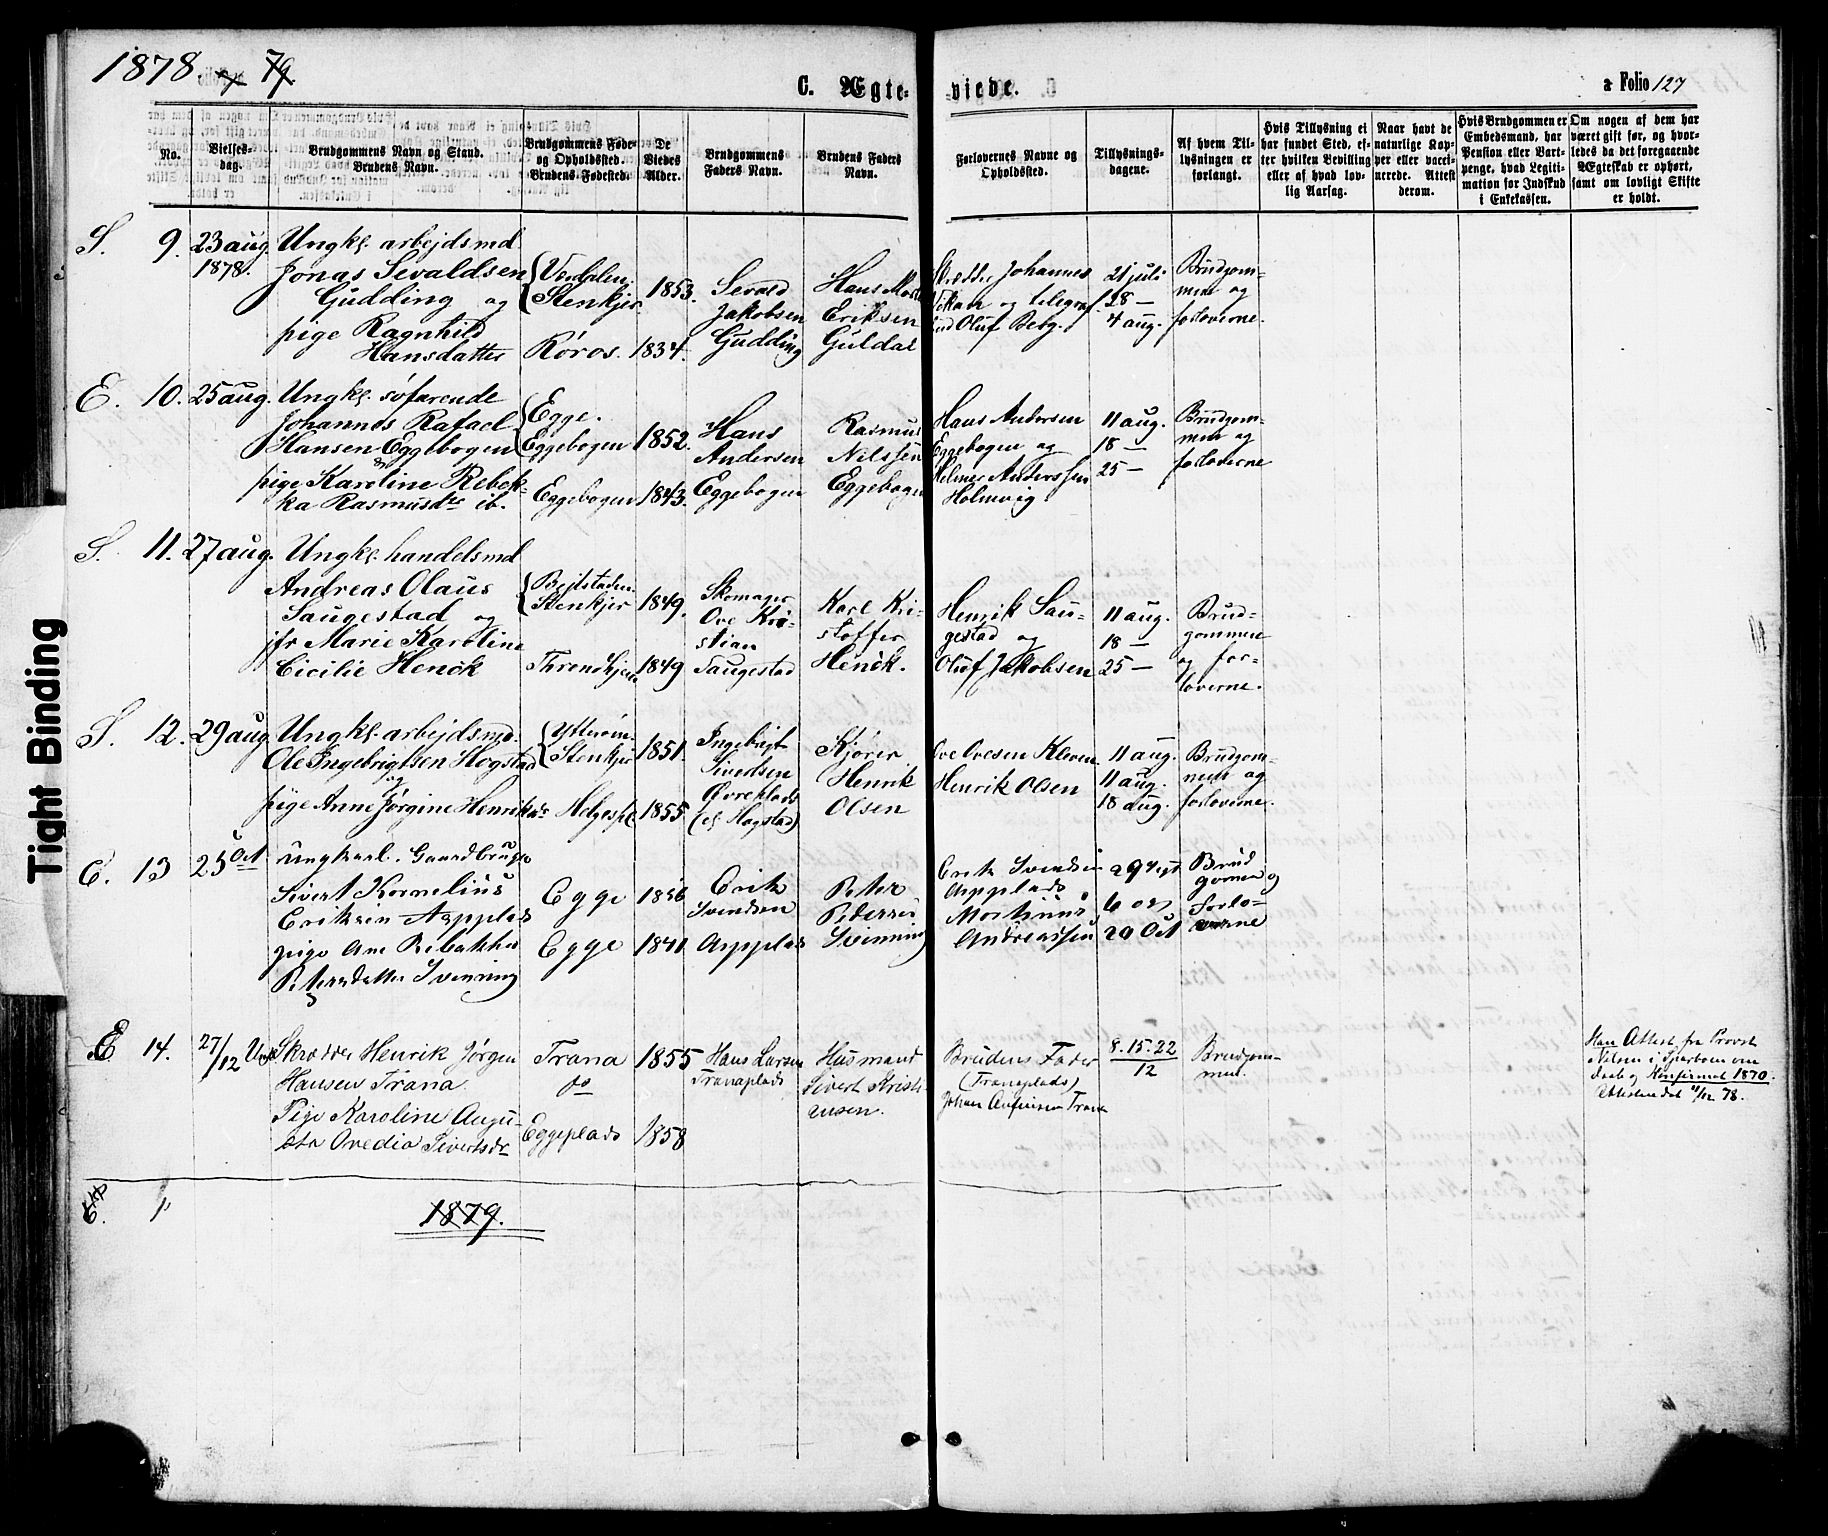 1878. og 79.
C. Ægteviede.
a Folio 127
No.
Vielsesdag.
Brudgommens Navn og Stand.
Brudens Navn.
Brudgommens Føde-
og Opholdssted.
Brudens Fødested.
De
Viedes
Alder.
Brudgommens
Faders Navn.
Brudens Faders
Navn.
Forlovernes Navne og
Opholdssted.
Tillysnings-
dagene.
Af hvem Til-
lysningen er
forlangt.
Hvis Tillysning ei
har fundet Sted, ef-
ter hvilken Bevilling
eller af hvad lov-
lig Aarsag.
Naar havt de
naturlige Kop-
per eller vacci-
nerede. Attest
derom.
Hvis Brudgommen er
Embedsmand, har
Pension eller Vart-
penge, hvad Legiti-
mation for Indskud
i Enkekassen.
Om nogen af dem har
været gift før, og hvor-
ledes da det foregaaende
Ægteskab er ophørt,
samt om lovligt Skifte
er holdt.
S. 9. 23 aug. 1878.
Ungkl. arbejdsmd
Jonas Sevaldsen
Gudding og
pige Ragnhild
Hansdatter
Værdalen,
Stenkjer
Røros.
1853.
1834.
Sevald
Jakobsen
Gudding
Hans
Eriksen
Guldal
Johannes
og
Oluf
21 juli
28 —
4 aug.
Brudgom-
men og
forloverne.
E. 10. 25 aug.
Ungkl. søfarende
Johannes Rafael
Hansen Eggebogen
og
pige Karoline Rebek-
ka Rasmusdtr ib.
Egge.
Eggebogen
Eggebogen
1852.
1843.
Hans
Andersen
Eggebogen
Rasmus
Nilssen
Eggebogen
Hans Andersen
Eggebogen og
Helmer Anderssen
Holmvig
11 aug.
18 —
25 —
Brudgom-
men og
forloverne
S. 11. 27 aug.
Ungkl. handelsmd
Andreas Olaus
Saugestad og
jfr Marie Karoline
Cicilie Henck
Bejtstaden.
Stenkjer
Throndhjem
1849.
1849
Skomager
Ove Kri-
stian
Saugestad
Karl Kri-
stoffer
Henck.
Henrik Sau-
gestad og
Oluf Jakobsen
11 aug.
18 —
25 —
Brud-
gommen
og for-
loverne.
S. 12. 29 aug
Ungkl. arbejdsmd.
Ole Ingebrigtsen Hogstad
og
pige Anne Jørgine Henriksdr
Ytterøen.
Stenkjer
Helgespl
1851.
1855
Ingebrigt
Sivertsen
Øvreplads
(el Hogstad)
Kjører
Henrik
Olsen
Ove Ovesen Kleven
Henrik Olsen
11 aug.
11 aug.
18 aug.
Brudgom-
men og
forloverne.
E. 13 25 Oct
Ungkarl. Gaardbruger
Sivert Kornelius
Eriksen Aspplads
pige Ane Rebakka
Petersdatter Svenning
Egge
Egge
1856
1841
Erik
Svendsen
Aspplads
Peter
Pedersen
Svenning
Erik Svendsen
Aspplads
Mortinus
Andreassen
29 Sept
6 Oct
20 Oct
Brud
gomen og
Forlo-
verne
E 14. 27/12
Skrædder Henrik Jørgen
Hansen Trana
Pige Karoline Augu-
sta Ovedia Sivertsdr
Trana
do
Eggeplads
1855
1858
Hans Larsen
Tranaplads
Husmand
Sivert Kristi-
ansen.
Brudens Fader
(Tranaplads)
Johan Anfinsen Trana
8. 15. 22
12
Brudgom-
men.
Han Attest fra Provst
Nilsen i Sparboen om
Daab og Konfirmat 1870.
Attesten dat 4/12 78.
E. 1
1879.
Tight Binding